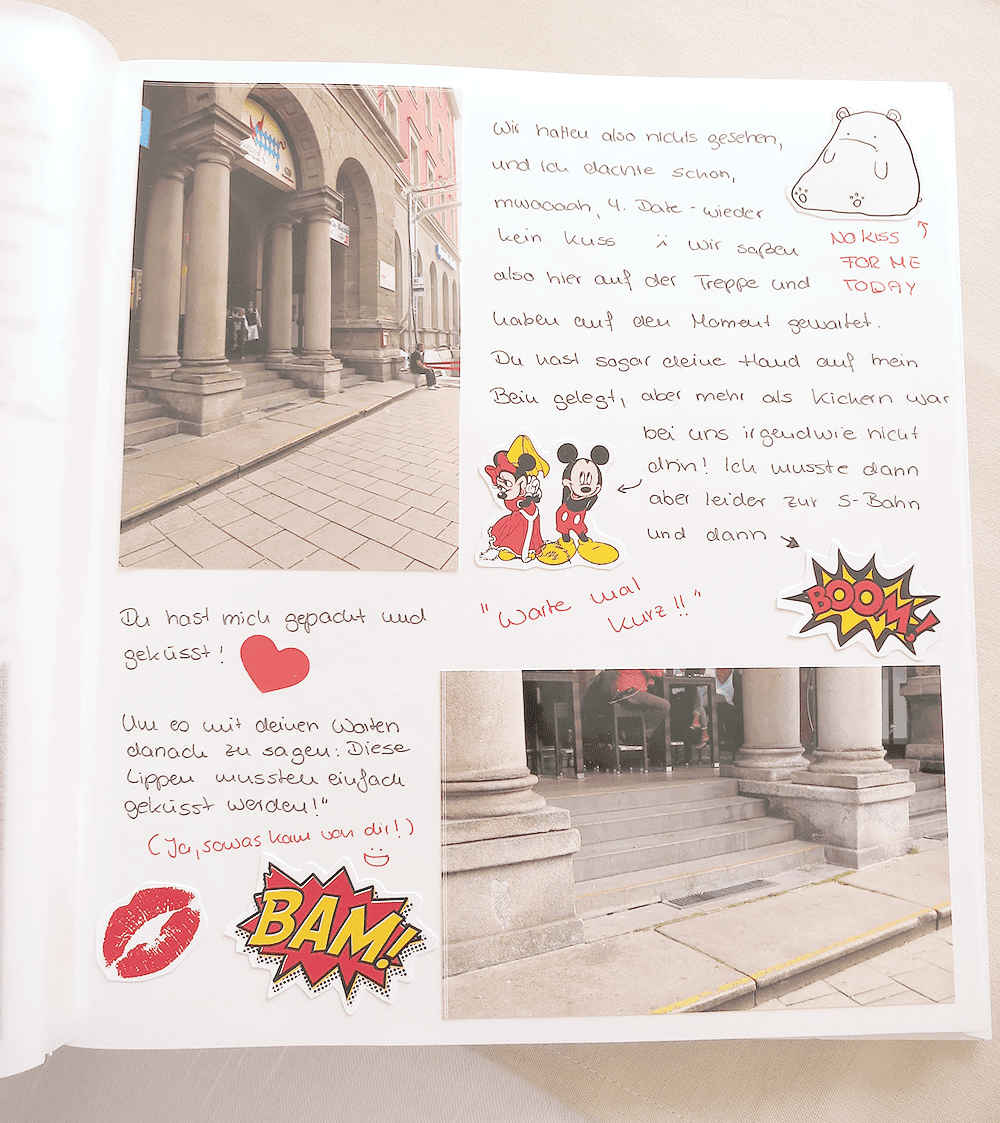 Wir hatten also nichts gesehen,
und ich dachte schon,
mwoooah, 4. Date - wieder
kein Kuss :( wir saßen
also hier auf der Treppe und
haben auf den Moment gewartet.
Du hast sogar deine Hand auf mein
Bein gelegt, aber mehr als Kichern war
bei uns irgendwie nicht
drin! Ich musste dann
aber leider zur S-Bahn
und dann
NO KISS
FOR ME
TODAY
"Warte mal
kurz!!"
BOOM!
Du hast mich gepackt und
geküsst!
Um es mit deinen Worten
danach zu sagen: Diese
Lippen mussten einfach
geküsst werden!"
(Ja, sowas kam von dir!)
BAM!